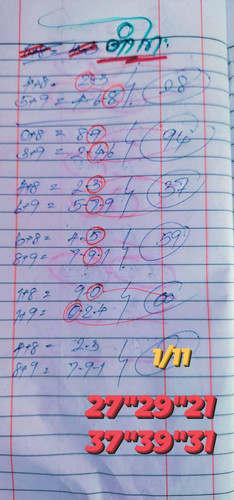 5+9 = 4-6-8
28
0+8 = 89
3+9 = 2-4-6
94
4+8 = 2-3
6+9 = 5-7-9
37
6+8 = 4-5
8+9= 7-9-1
59
9 0
0-2-4
00
4+8- 2-3
8+9 = 7-9-1
1/11
27"29"21
37"39"31